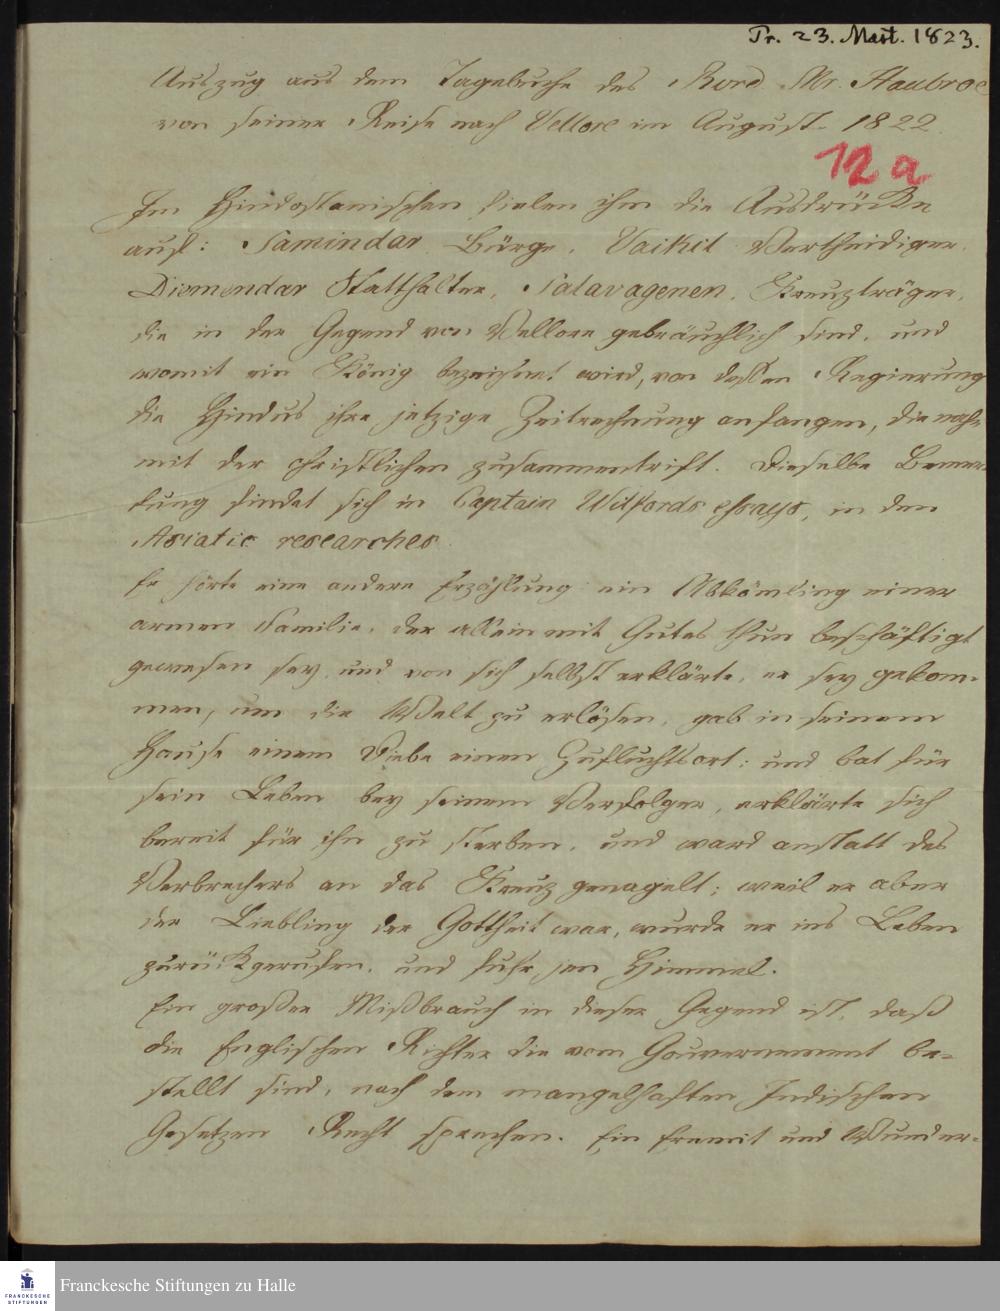 Tr. 23. Mart. 1823.
Auszug aus dem Tagebuche des Revd Mr. Haubroe
von seiner Reise nach Vellore im August 1822
12 a
Im Hindostanischen fielen ihm die Ausdrücke
auf: Samindar Bürge, Vaikil Vertheidiger,
Diemendar Statthalter, Salavagenen, Kreuzträger,
die in der Gegend von Vellore gebräuchlich sind, und
womit ein König bezeichnet wird, von dessen Regierung
die Hindus ihre jetzige Zeitrechnung anfangen, die nahe
mit der christlichen zusammentrift. Dieselbe Bemer-
kung findet sich in Captain Wilfords essays, in den
Asiatic researches
Er hörte eine andere Erzählung ein Abkömling einer
armen Familie, der allein mit Gutes thun beschäftigt
gewesen sey, und von sich selbst erklärte, er sey gekom-
men, um die Welt zu erlösen, gab in seinem
Hause einem Diebe einen Zufluchtsort: und bat für
sein Leben bey seinem Verfolger, erklärte sich
bereit für ihn zu sterben, und ward anstatt des
Verbrechers an das Kreuz genagelt; weil er aber
der Liebling der Gottheit war, wurde er ins Leben
zurückgerufen, und fuhr gen Himmel.
Ein großer Mißbrauch in dieser Gegend ist, daß
die Englischen Richter die vom Gouvernement be-
stellt sind, nach dem mangelhaften Indischen
Gesetzen Recht sprechen. Ein Eremit und Wunder-
FRANCKESCHE
STIFTUNGEN
Franckesche Stiftungen zu Halle